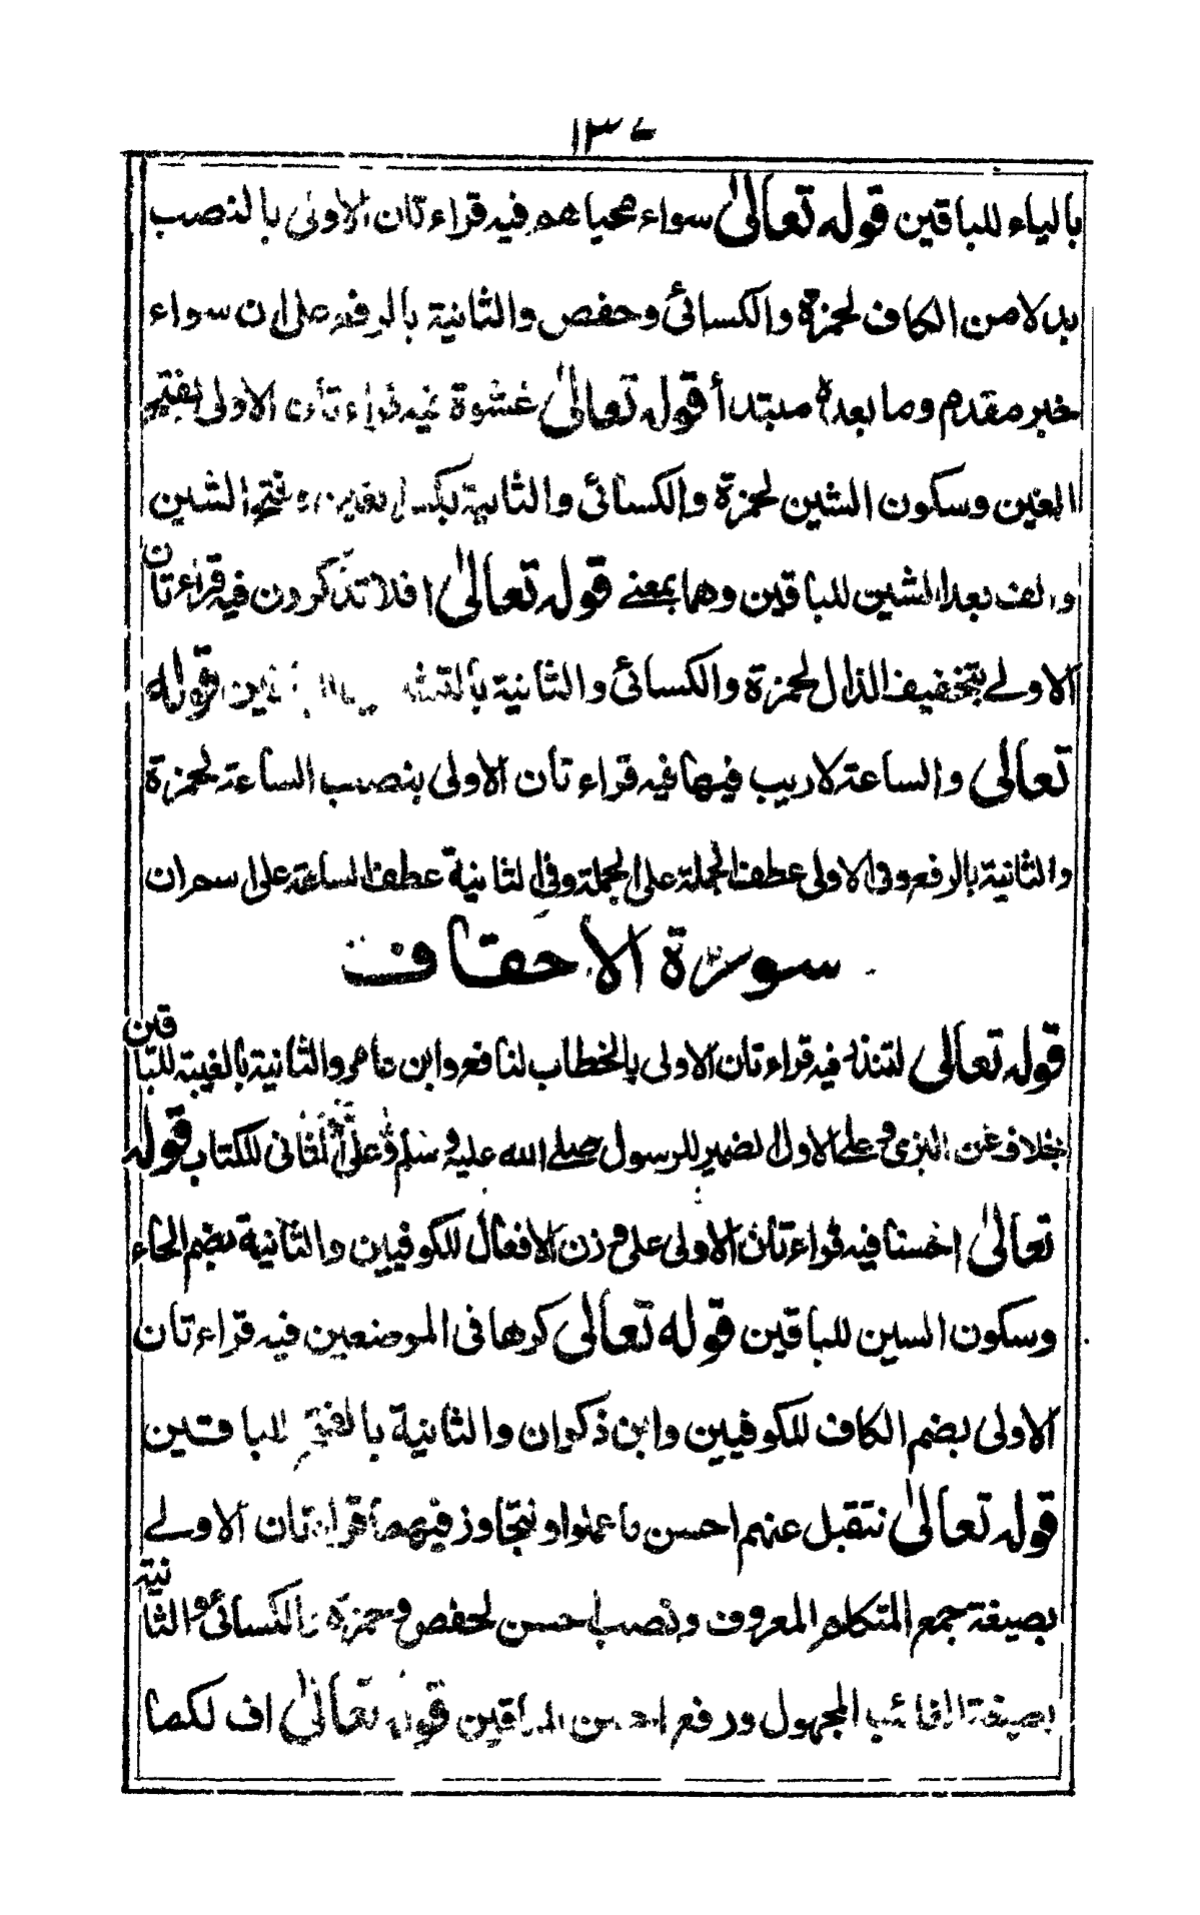 ١٣٧
بالياء للباقين قوله تعالىٰ سواء محياهم فيه قراءتان الاولى بالنصب
بدلا من الكاف لحمزة والكسائى وحفص والثانية بالرفع على ان سواء
خبر مقدم وما بعده مبتدأ قوله تعالىٰ غشوة فيه قراءتان الاولى بفتح
الغين وسكون الشين لحمزة والكسائى والثانية بكسر الغين وفتح الشين
والف بعد الشين للباقين وهما بمعنے قوله تعالىٰ افلا تذكرون فيه قراءتان
الاولے بتخفيف الذال لحمزة والكسائى والثانية بالتشديد للباقين قوله
تعالى والساعة لاريب فيها فيه قراءتان الاولى بنصب الساعة لحمزة
والثانية بالرفع وفى الاولى عطف الجملة على الجملة وفى الثانية عطف الساعة على اسم ان
سورة الاحقاف
قوله تعالى لتنذر فيه قراءتان الاولى بالخطاب لنافع وابن عامر والثانية بالغيبة للباقين
بخلاف عن البزى وعلے الاول الضمير للرسول صلے الله عليه وسلم وعلى الثانى للكتاب قوله
تعالىٰ احسنا فيه قراءتان الاولى على وزن الافعال للكوفيين والثانية بضم الحاء
وسكون السين للباقين قوله تعالى كرها فى الموضعين فيه قراءتان
الاولى بضم الكاف للكوفيين وابن ذكوان والثانية بالفتح للباقين
قوله تعالىٰ نتقبل عنهم احسن ما عملوا ونتجاوز فيهما قراءتان الاولے
بصيغة جمع المتكلم المعروف ونصب احسن لحفص وحمزة والكسائى والثانية
بصيغة الغائب المجهول ورفع احسن للباقين قوله تعالىٰ اف لكما